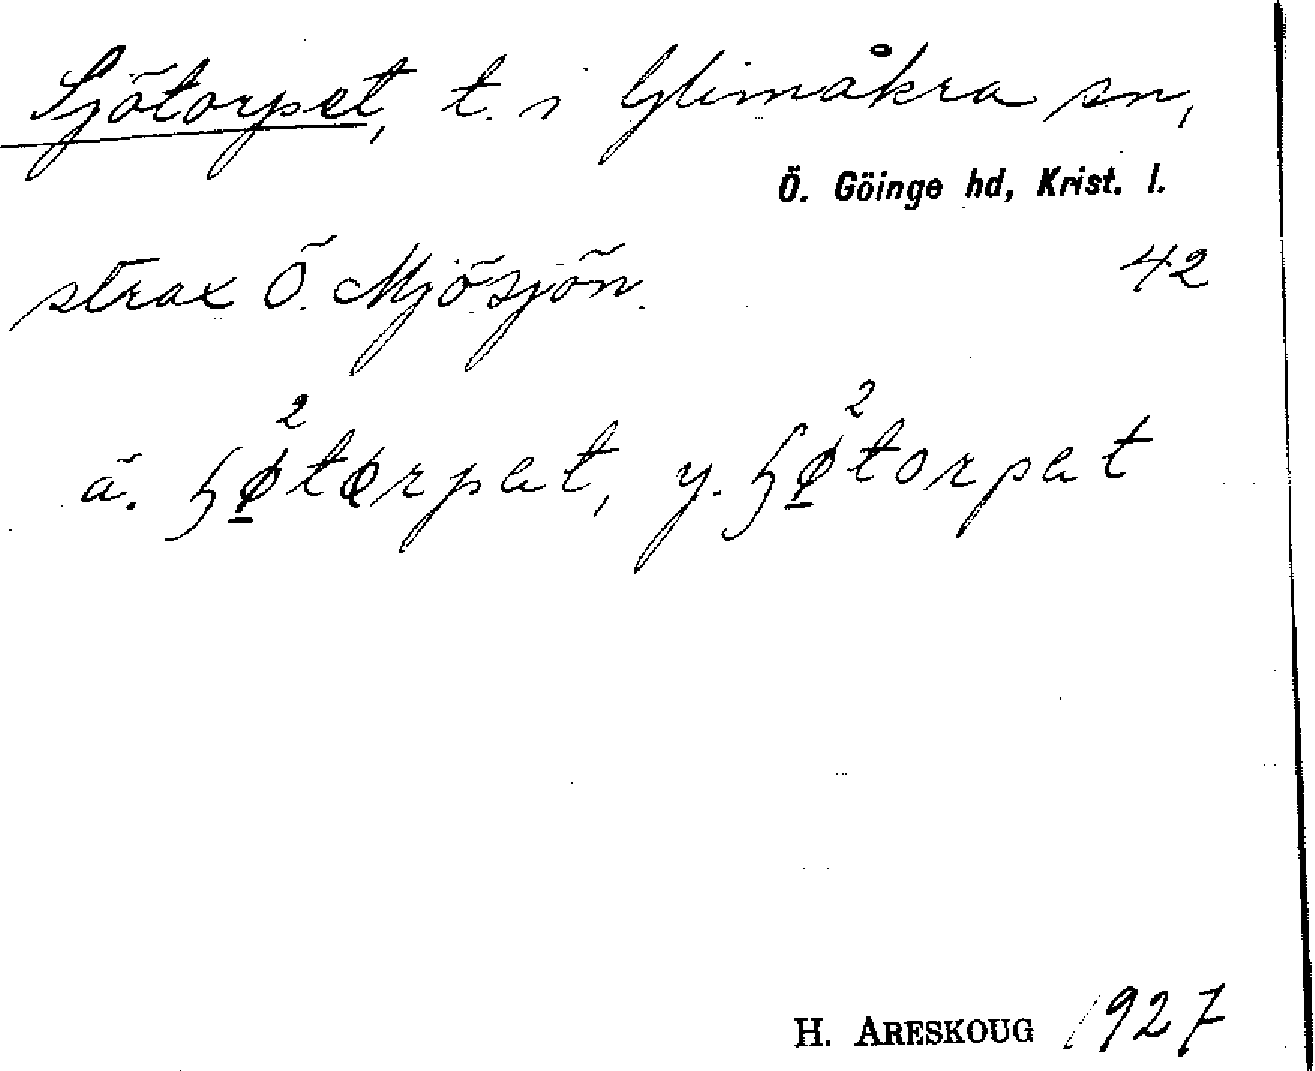 Sjötorpet, t. i Glimåkra sn,
Ö. Göinge hd, Krist. l.
strax Ö. Mjösjön. 42
ä. ɧø̠²tɵrpat, y. ɧø̠²torpat
H. ARESKOUG 1927